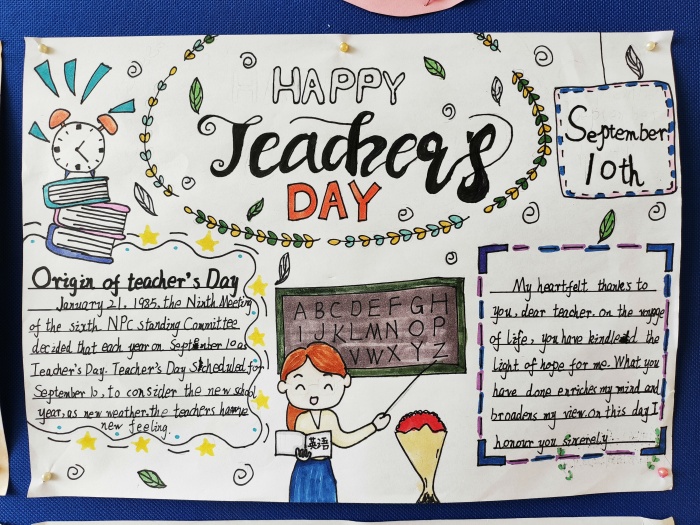 HAPPY
Teacher's
DAY
September
10th
Origin of teacher's Day
January 21, 1985, the Ninth Meeting
of the sixth NPC standing Committee
decided that each year on September 10 as
Teacher's Day. Teacher's Day Scheduled for
September 10, to consider the new school
year, as new weather. the teachers have
new feeling.
A B C D E F G H
I J K L M N O P
V W X Y Z
英语
My heartfelt thanks to
you, dear teacher. on the voyage
of life, you have kindled the
light of hope for me. What you
have done enriches my mind and
broadens my view. on this day I
honour you sincerely